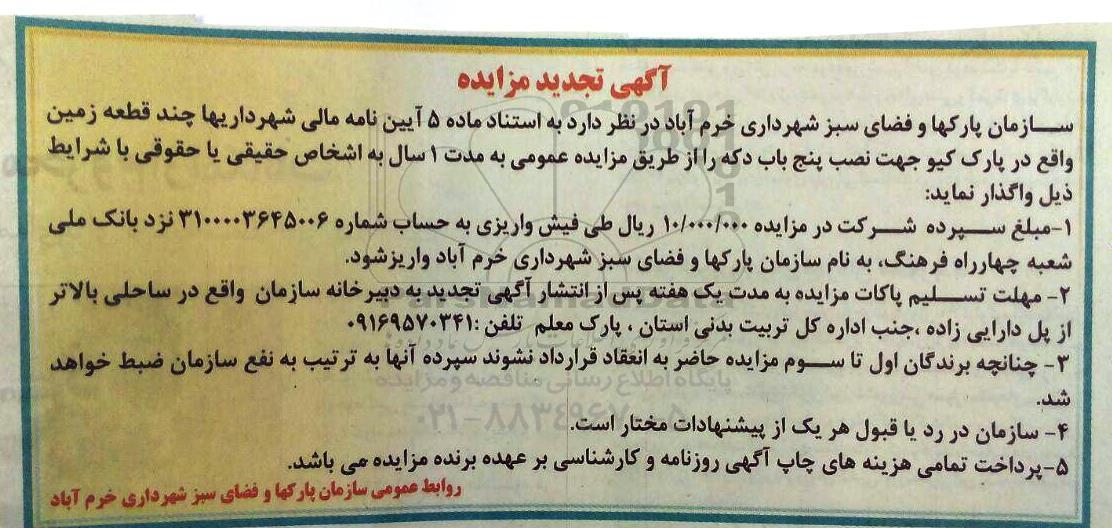 آگهی تجدید مزایده
سازمان پارکها و فضای سبز شهرداری خرم آباد در نظر دارد به استناد ماده ۵ آیین نامه مالی شهرداریها چند قطعه زمین
واقع در پارک کیو جهت نصب پنج باب دکه را از طریق مزایده عمومی به مدت ۱ سال به اشخاص حقیقی یا حقوقی با شرایط
ذیل واگذار نماید:
۱-مبلغ سپرده شرکت در مزایده ۱۰/۰۰۰/۰۰۰ ریال طی فیش واریزی به حساب شماره ۳۱۰۰۰۰۳۶۴۵۰۰۶ نزد بانک ملی
شعبه چهارراه فرهنگ، به نام سازمان پارکها و فضای سبز شهرداری خرم آباد واریزشود.
۲- مهلت تسلیم پاکات مزایده به مدت یک هفته پس از انتشار آگهی تجدید به دبیرخانه سازمان واقع در ساحلی بالاتر
از پل دارایی زاده ،جنب اداره کل تربیت بدنی استان ، پارک معلم تلفن :۰۹۱۶۹۵۷۰۳۴۱
۳- چنانچه برندگان اول تا سوم مزایده حاضر به انعقاد قرارداد نشوند سپرده آنها به ترتیب به نفع سازمان ضبط خواهد
شد.
پایگاه اطلاع رسانی مناقصه و مزایده
۴- سازمان در رد یا قبول هر یک از پیشنهادات مختار است.
۵-پرداخت تمامی هزینه های چاپ آگهی روزنامه و کارشناسی بر عهده برنده مزایده می باشد.
روابط عمومی سازمان پارکها و فضای سبز شهرداری خرم آباد